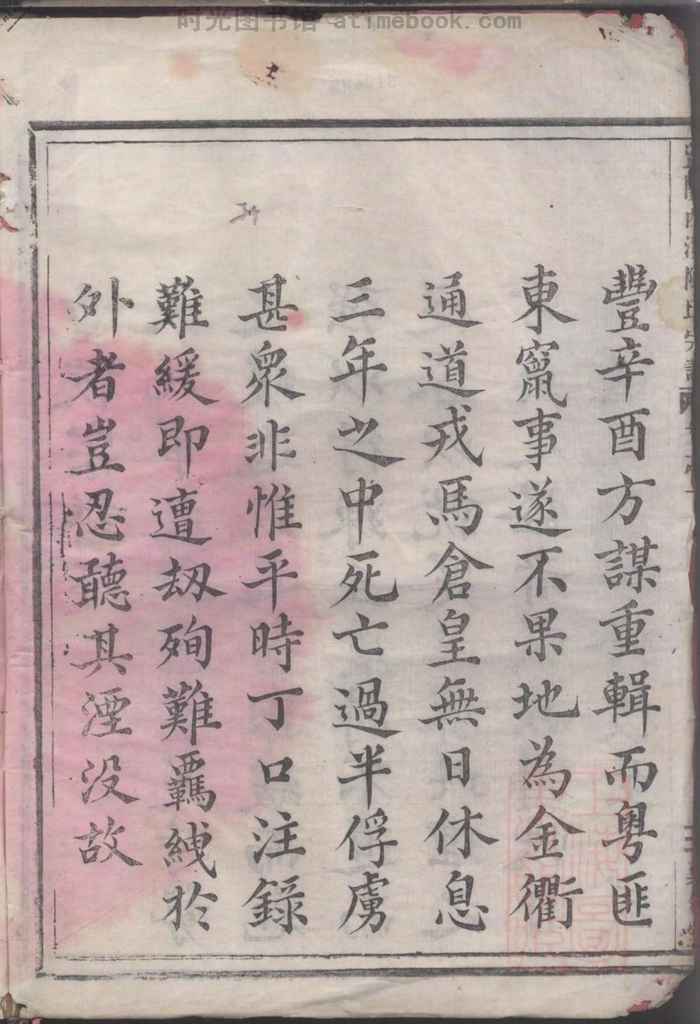 时光图书馆 - atimebook.com
豐辛酉方謀重輯而粤匪
東竄事遂不果地為金衢
通道戎馬倉皇無日休息
三年之中死亡過半俘虜
甚眾非惟平時丁口注錄
難緩即遭刼殉難羈絏於
外者豈忍聽其湮没故